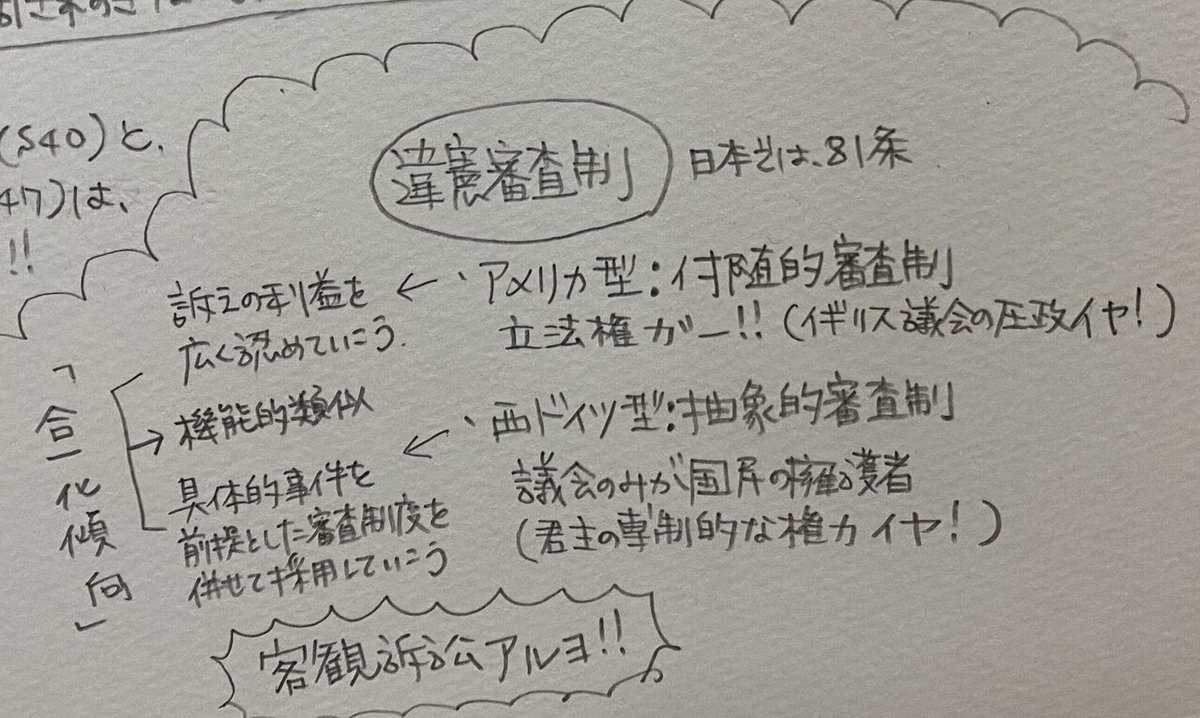 (S40)と、
47)は、
!!
違憲審査制
日本では、81条
・アメリカ型:付随的審査制
立法権ガー!!(イギリス議会の圧政イヤ!)
← 訴えの利益を
広く認めていこう.
・西ドイツ型:抽象的審査制
議会のみが国民の擁護者
(君主の専制的な権力イヤ!)
← 具体的事件を
前提とした審査制度を
併せて採用していこう
→機能的類似
「合一化傾向」
客観訴訟アルヨ!!